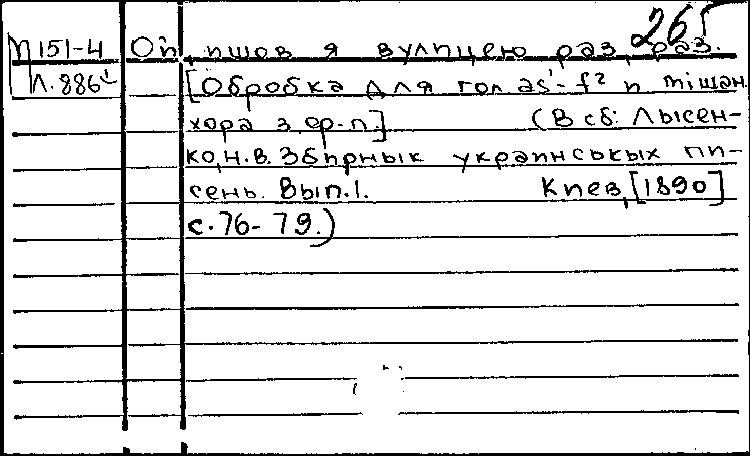 265
П151-4 Ой, пшов я вулицею раз, раз.
Л.886¹ [Обробка для гол as¹-f² и мішан.
хора з ор-п.] (В сб: Лысен-
ко, н.в. Збірнык украинськых пи-
сень. Вып.1. Киев, [1890]
с.76-79.)